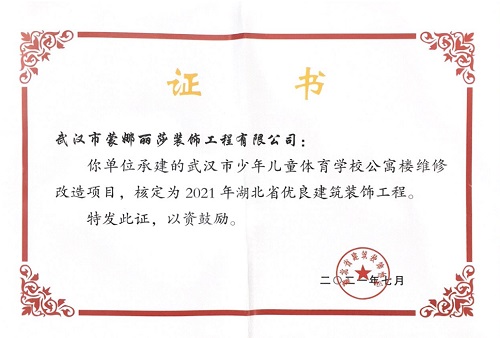 证 书
武汉市蒙娜丽莎装饰工程有限公司：
你单位承建的武汉市少年儿童体育学校公寓楼维修
改造项目，核定为2021年湖北省优良建筑装饰工程。
特发此证，以资鼓励。
二〇二一年七月